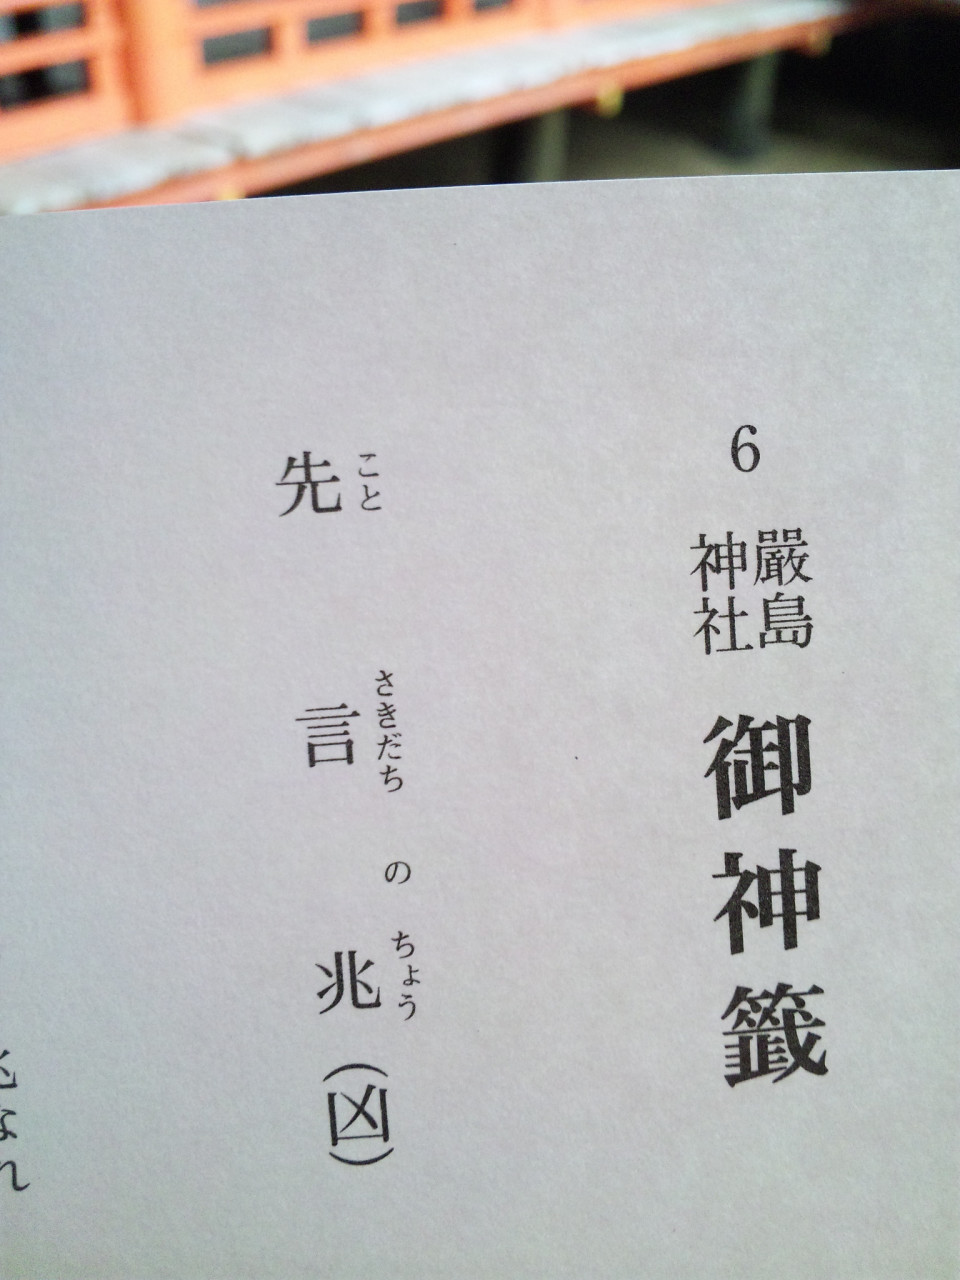 6 厳島神社 御神籤
こと さきだち の ちょう
先言兆(凶)
なれ